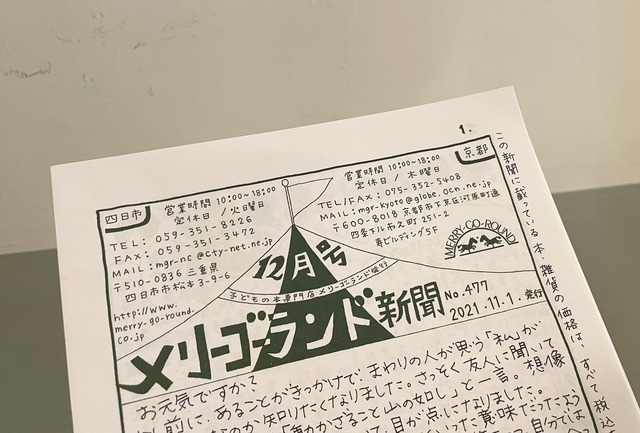 1.
四日市
営業時間 10:00~18:00
定休日 / 火曜日
TEL: 059-351-8226
FAX: 059-351-3472
MAIL: mgr-nc@cty-net.ne.jp
〒510-0836 三重県
四日市市松本3-9-6
http://www.
merry-go-round.
co.jp
京都
営業時間 10:00~18:00
定休日 / 木曜日
TEL/FAX: 075-352-5408
MAIL: mgr-kyoto@globe.ocn.ne.jp
〒600-8018 京都市下京区河原町通
四条下ル市之町 251-2
寿ビルディング5F
MERRY-GO-ROUND
12月号
子どもの本専門店メリーゴーランド発行
メリーゴーランド新聞
No.477
2021.11.1. 発行
この新聞に載っている本・雑貨の価格は、すべて税込
お元気ですか?
前に、あることがきっかけで、まわりの人が思う「私」が
なのか知りたくなりました。さっそく友人に聞いて
「動かざること山の如し」と一言。想像
て、目が点になりました。
た意味だったよう
自分では